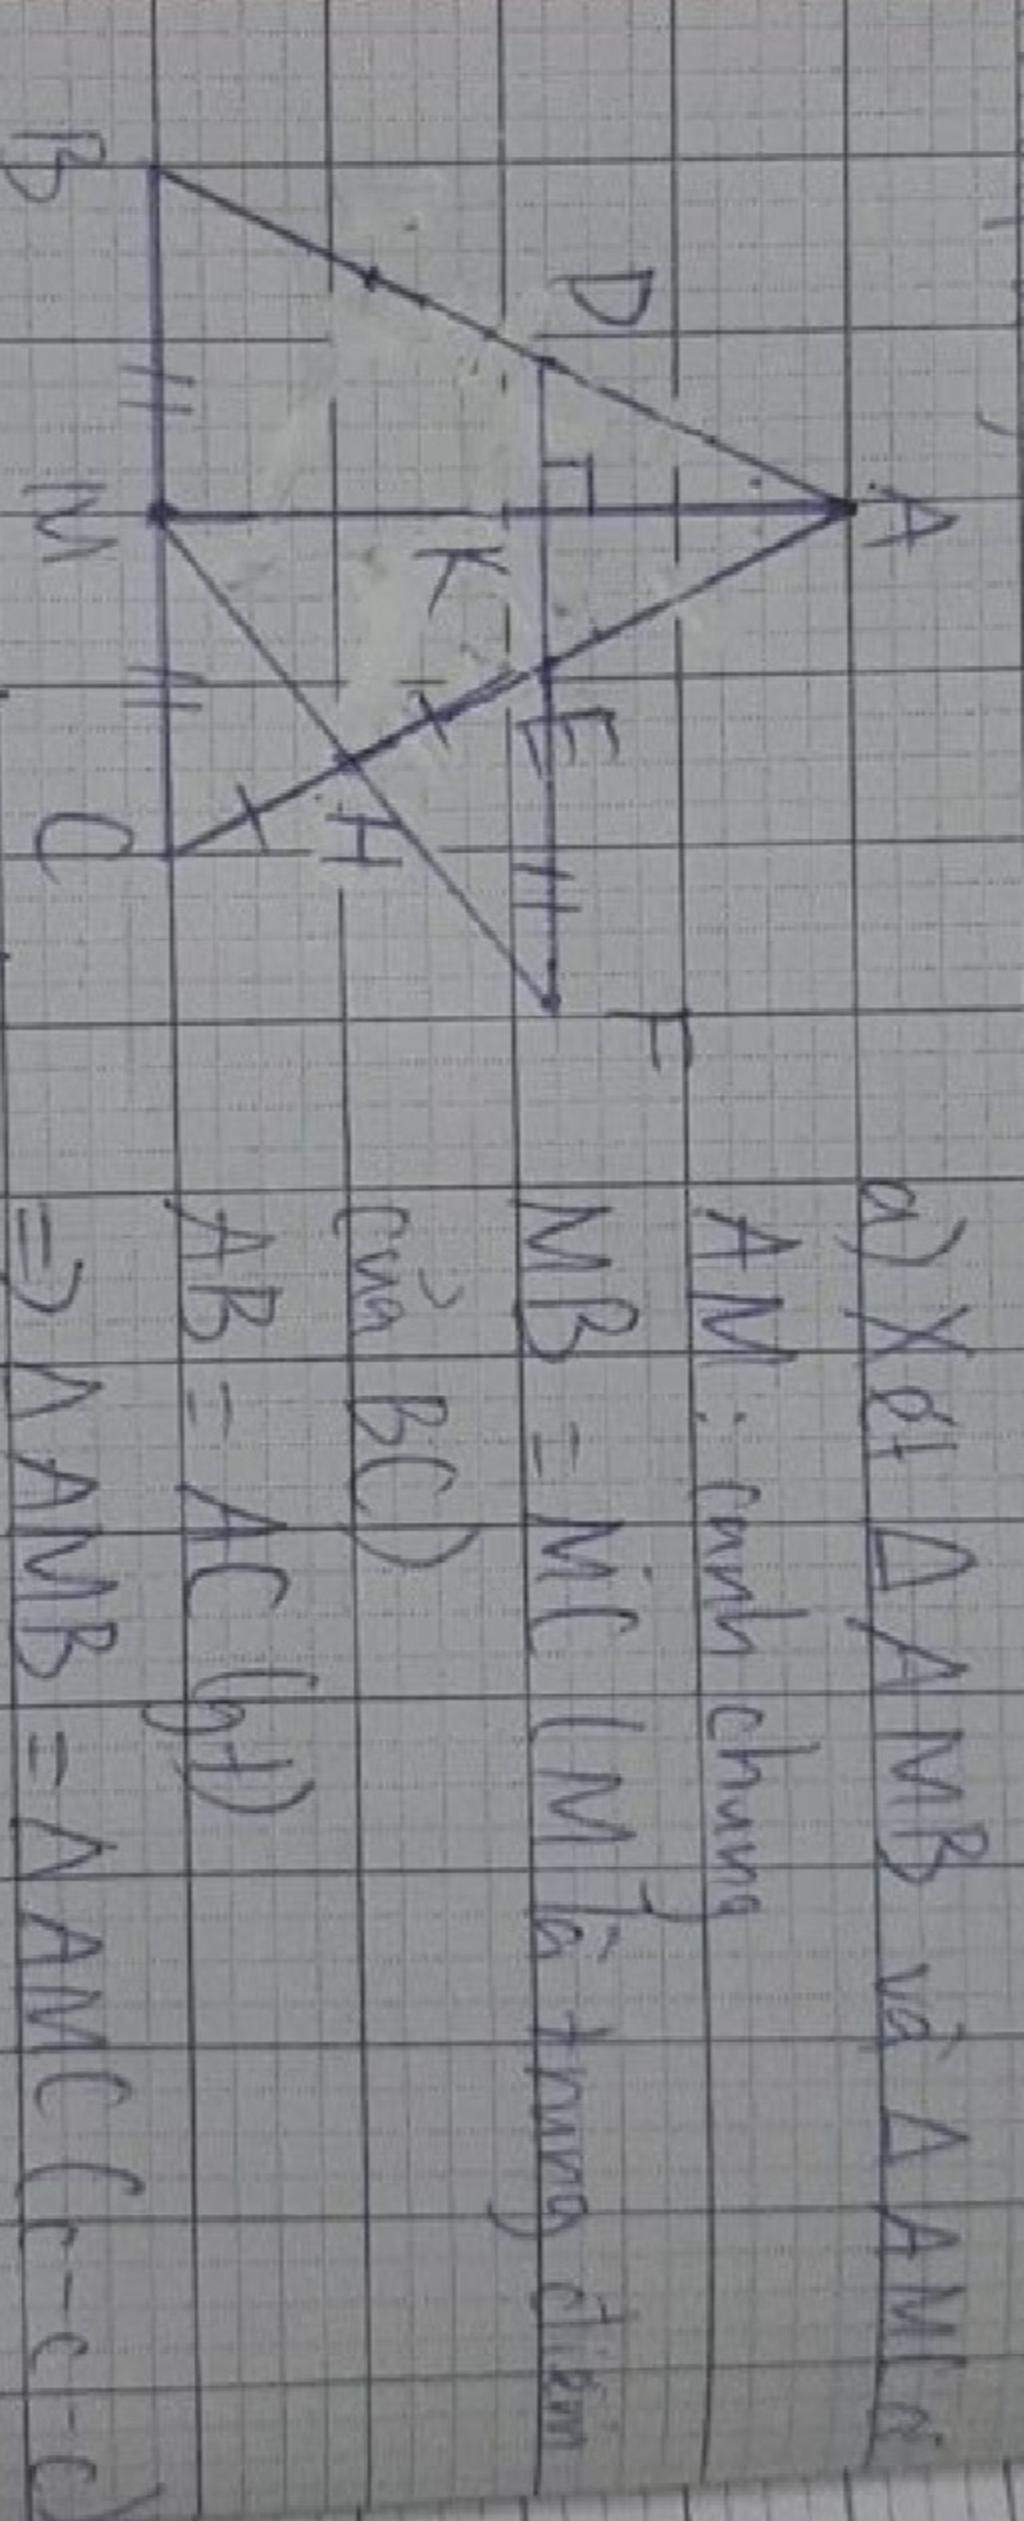 A
D
E
F
K
H
B
M
C
a) Xét Δ AMB và Δ AMC có
AM : cạnh chung
MB = MC (M là trung điểm
của BC)
AB = AC (gt)
=> Δ AMB = Δ AMC (c-c-c)